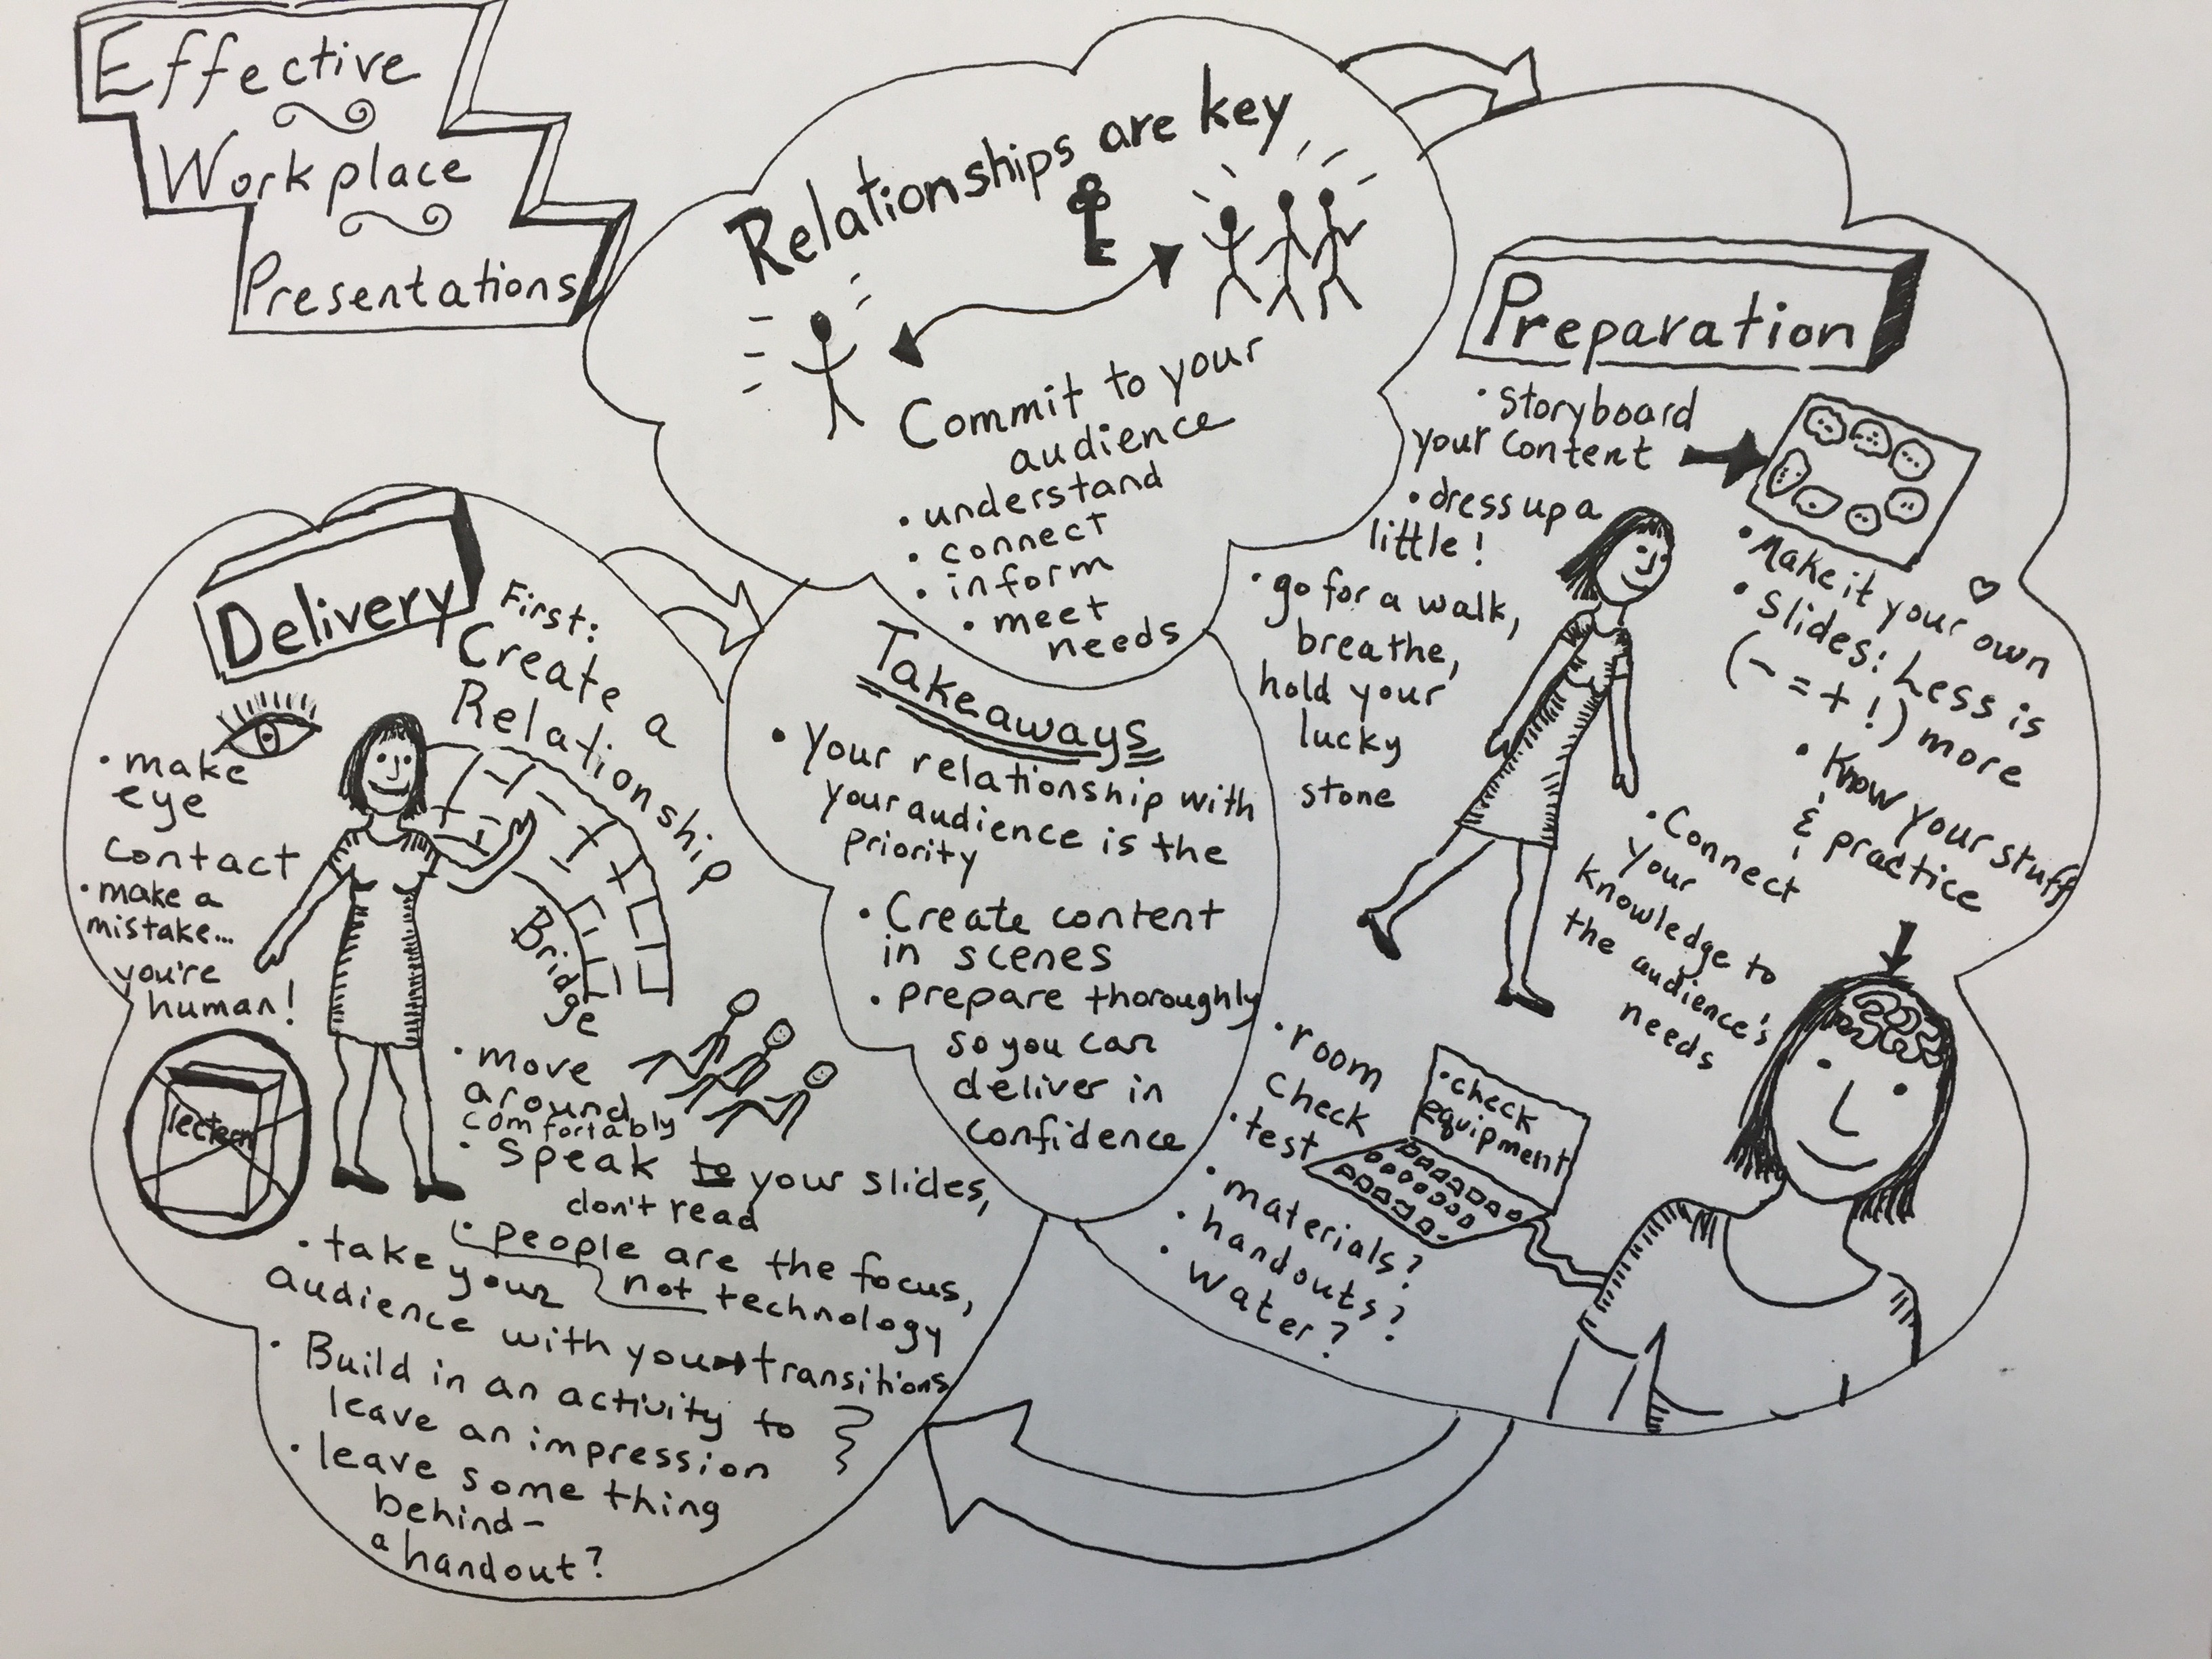 Effective
Workplace
Presentations
Relationships are key
Commit to your
audience
• understand
• connect
• inform
• meet
needs
Preparation
• Storyboard
your content
• dress up a
little!
• go for a walk,
breathe,
hold your
lucky
stone
• Make it your own
• Slides: Less is
(- = + !) more
• Know your stuff
& practice
• Connect
your
knowledge to
the audience's
needs
• room
check
• test
• check
equipment
• materials?
• handouts?
• Water?
Delivery
First:
Create a
Relationship
• make
eye
contact
• make a
mistake...
you're
human!
Bridge
lectern
• move
around
comfortably
• Speak to your slides,
don't read
• people are the focus,
not technology
• take your
audience with you → transitions
• Build in an activity to
leave an impression
• leave some thing
behind -
a handout?
Takeaways
• Your relationship with
your audience is the
priority
• Create content
in scenes
• prepare thoroughly
so you can
deliver in
confidence